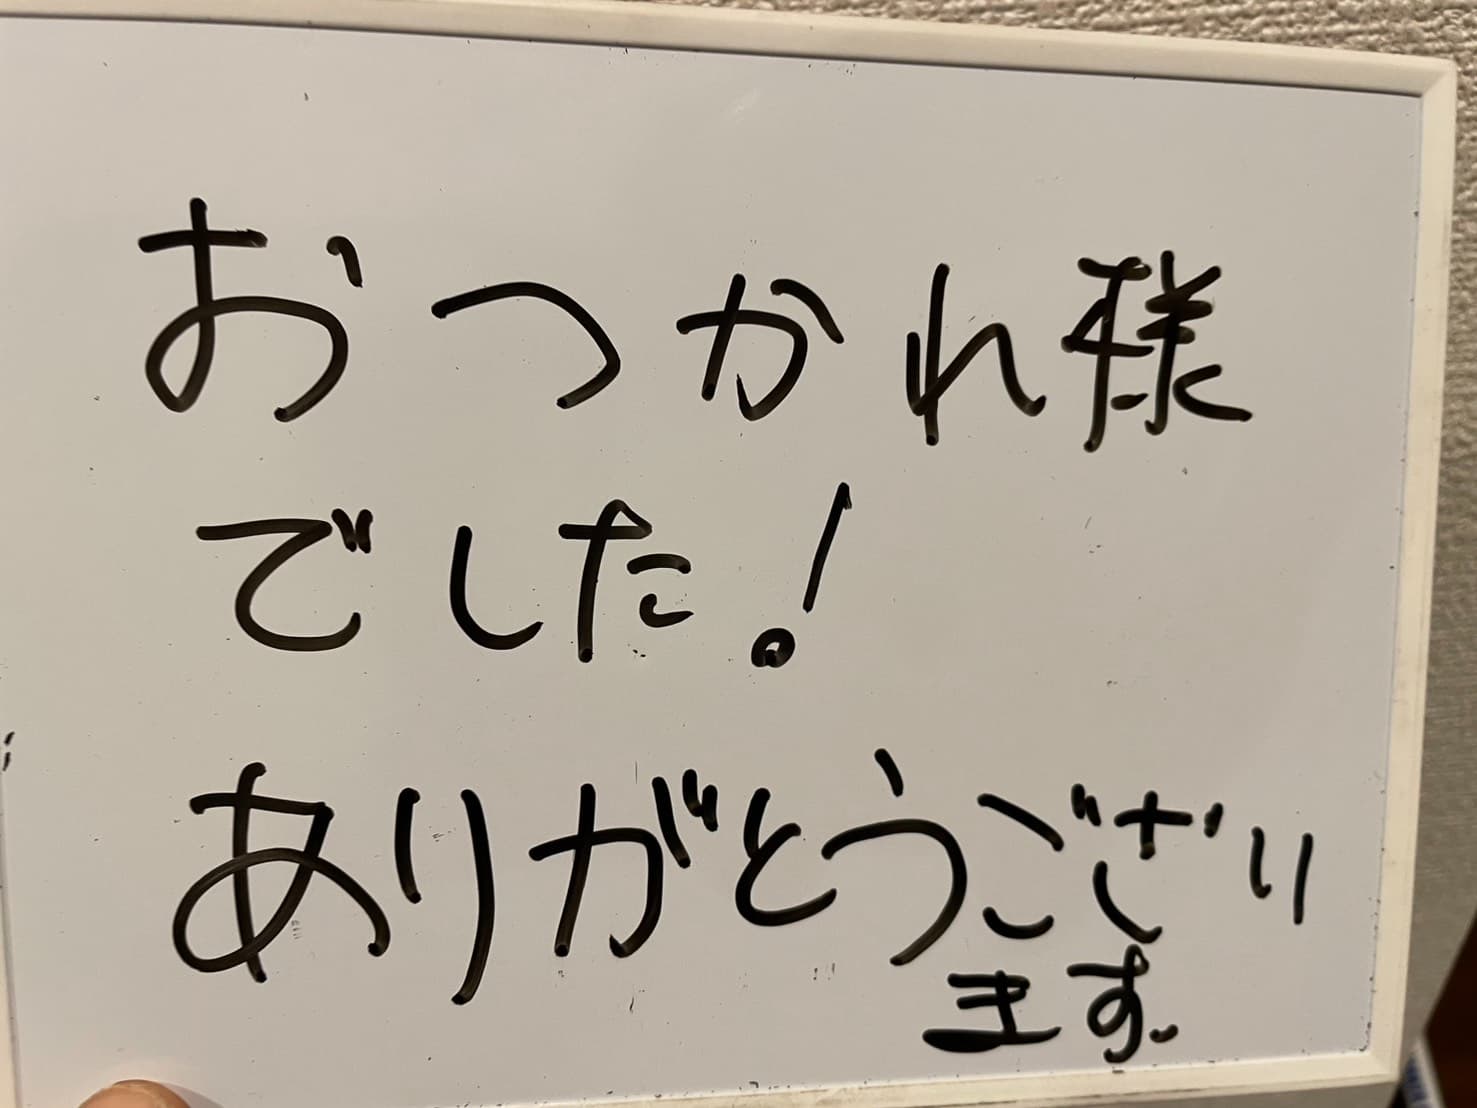 おつかれ様
でした!
ありがとうござい
ます。